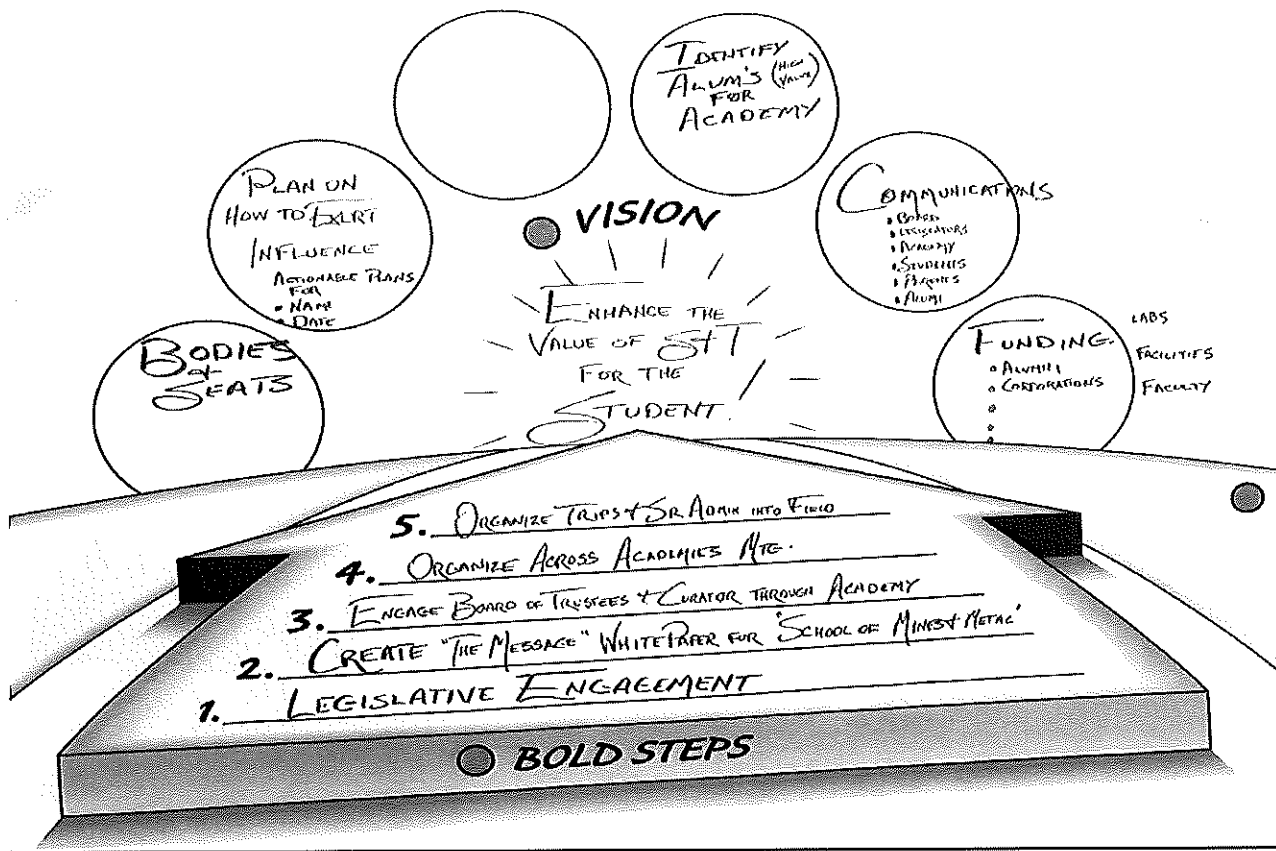 IDENTIFY
ALUM'S (HIGH VALUE)
FOR
ACADEMY
PLAN ON
HOW TO EXERT
INFLUENCE
ACTIONABLE PLANS
FOR
• NAME
• DATE
COMMUNICATIONS
• BOARD
• LEGISLATORS
• ACADEMY
• STUDENTS
• PARENTS
• ALUMI
BODIES
&
SEATS
FUNDING
• ALUMNI
• CORPORATIONS
LABS
FACILITIES
FACULTY
VISION
ENHANCE THE
VALUE OF S&T
FOR THE
STUDENT.
5. ORGANIZE TRIPS & SR. ADMIN INTO FIELD
4. ORGANIZE ACROSS ACADEMIES MTG.
3. ENGAGE BOARD OF TRUSTEES & CURATOR THROUGH ACADEMY
2. CREATE "THE MESSAGE" WHITE PAPER FOR 'SCHOOL OF MINES & METAL'
1. LEGISLATIVE ENGAGEMENT
BOLD STEPS